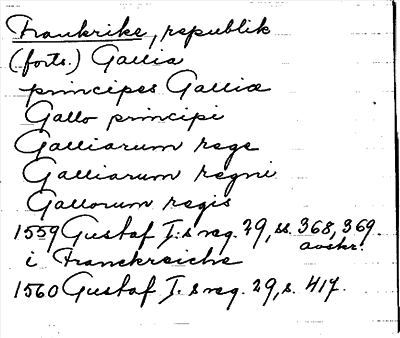 Frankrike, republik
(forts.) Gallia
principes Galliæ
Gallo principi
Galliarum rege
Galliarum regni
Gallorum regis
1559 Gustaf I:s reg. 29, ss. 368, 369.
avskr.
i Franckreiche
1560 Gustaf I.s reg. 29, s. 417.